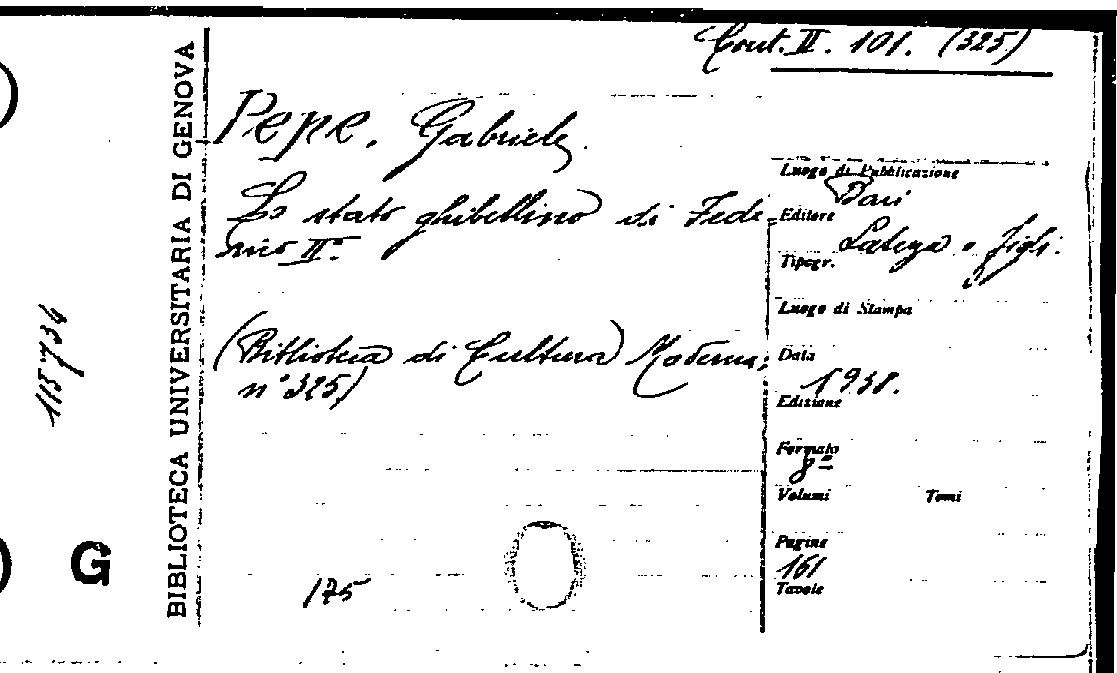 Cont. II. 101. (325)
BIBLIOTECA UNIVERSITARIA DI GENOVA
115734
G
Pepe, Gabriele.
Lo stato ghibellino di Fede-
rico II°
(Biblioteca di Cultura Moderna,
n° 325)
175
Luogo di Pubblicazione
Bari
Editore
Laterza e figli.
Tipogr.
Luogo di Stampa
Data
1938.
Edizione
Formato
8°
Volumi Tomi
Pagine
161
Tavole